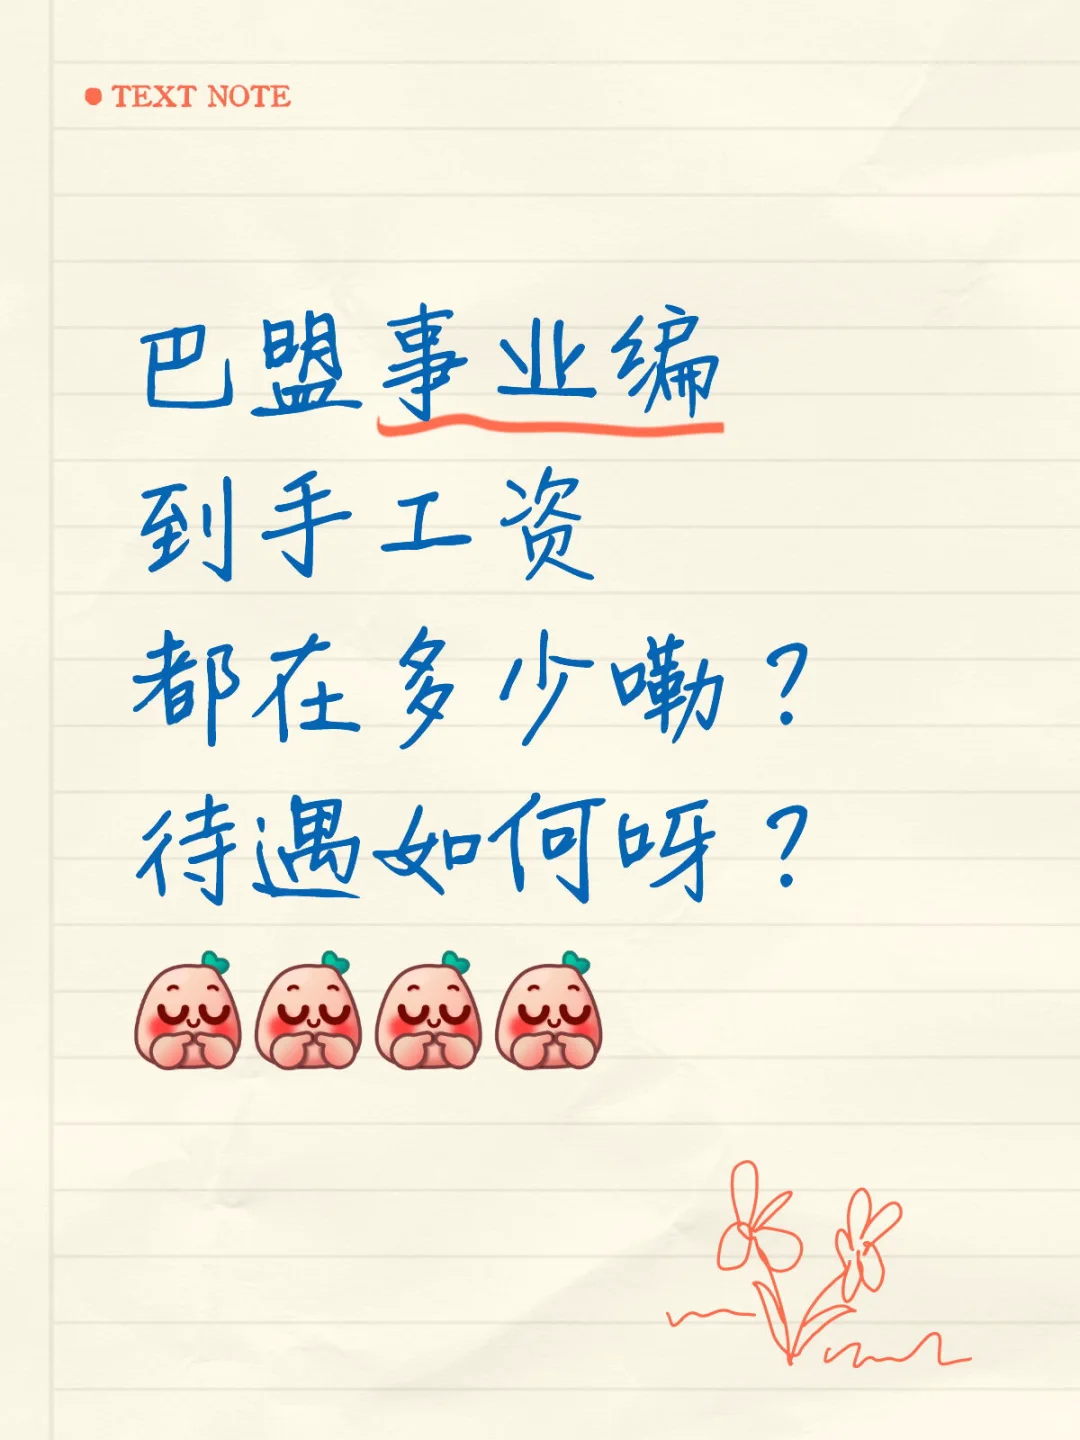 TEXT NOTE
巴盟事业编
到手工资
都在多少嘞？
待遇如何呀？